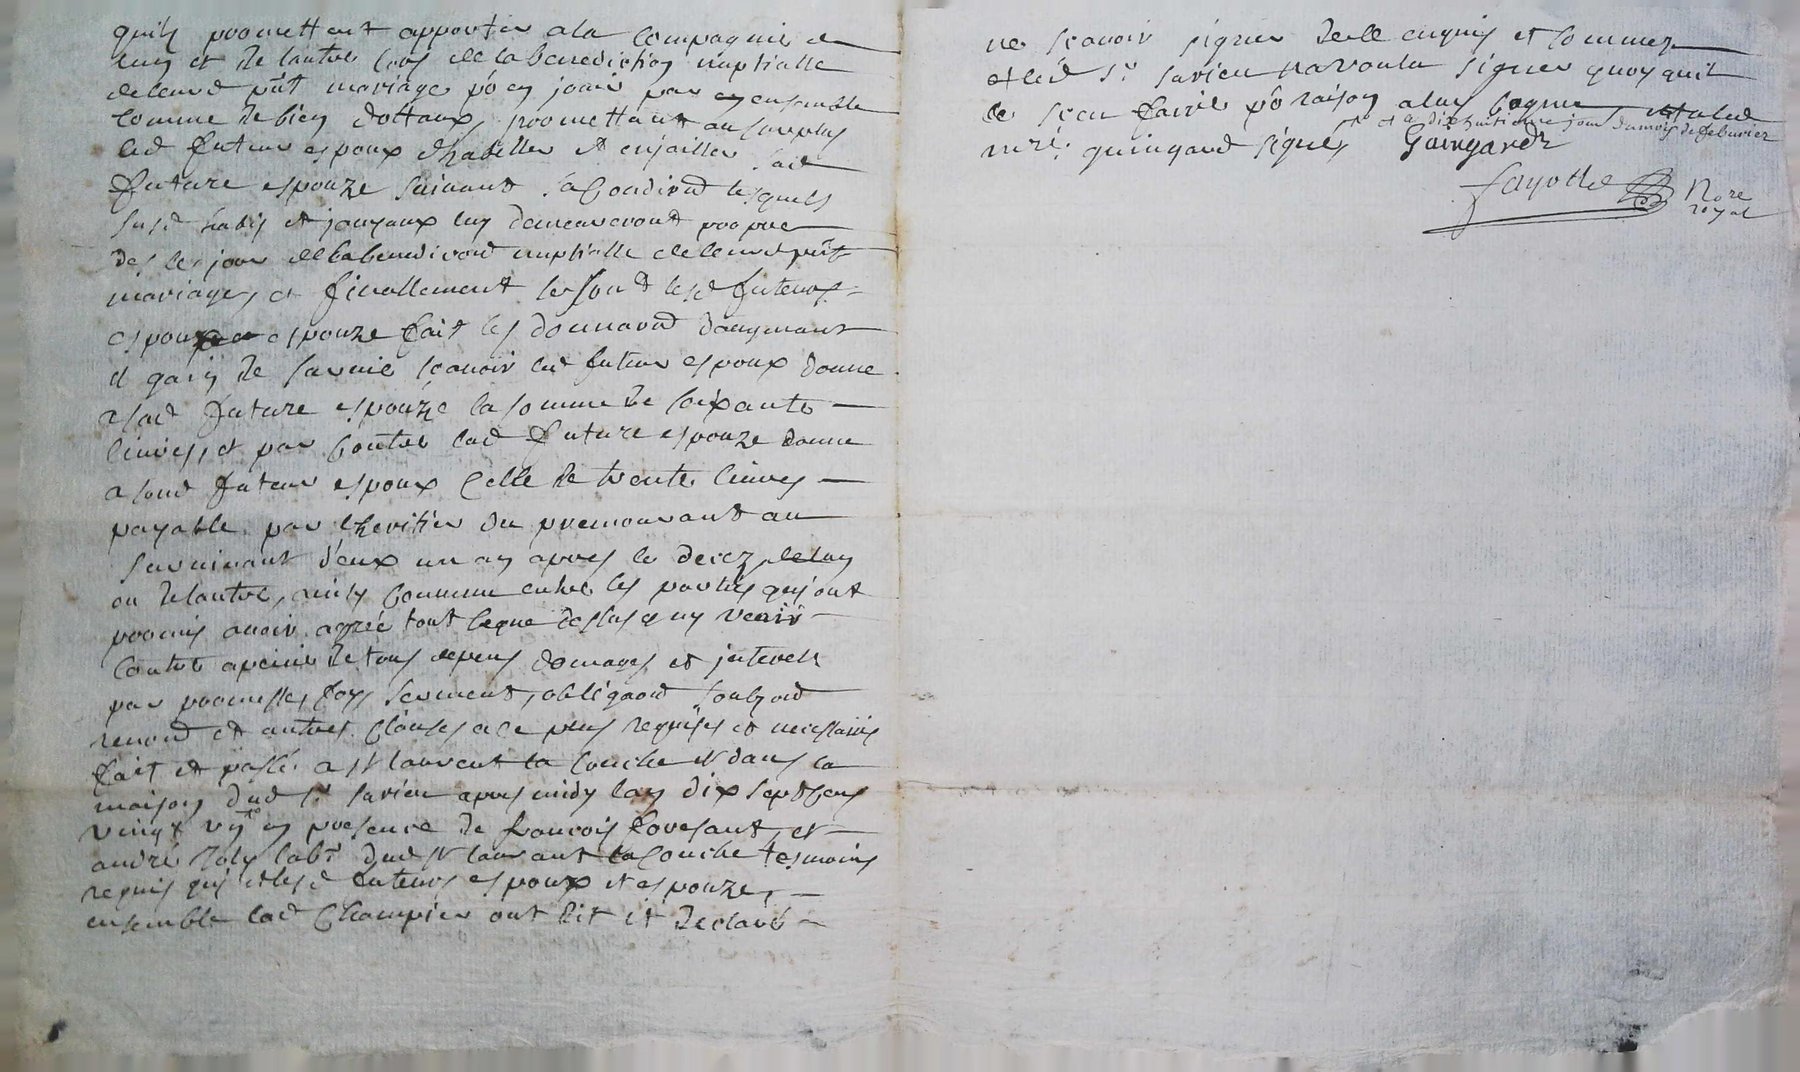 quils promettent apporter a la Compagnie de
luny et de lautre lors de la benediction nuptialle
de leurd pñt mariage po en jouir par en ensemble
Comme de bien dottaux, promettant au surplus
led futeur espoux dhabiller et enjailler sad
future espouze suivant sa Condiond lesquels
susd habis et jouyaux luy demeureront propre
des le jour de la benediond nuptialle de leurd pñt
mariage, et finallement se sond lesd futeurs
espoux et espouze fait les donnaond daugmant
et gain de survie scavoir led futeur espoux donne
a sad future espouze la somme de soixante
livres, et par Contre lad future espouze donne
a sond futeur espoux Celle de trente livres
payable par lheritier du premourant au
survivant d'eux un an apres le decez de luy
ou de lautre, ainsy Convenu entre les parties qui ont
promis avoir agree tout Ceque dessus et ny venir
Contre a peine de tous depens domages et interets
par promesse, foy, serment, obligaond soubzond
renond et autres Clauses a Ce peus requises et necessaires
fait et passé a st laurent la Couche et dans la
maison dud sr savieu apres midy lan dix sept Cens
vingt vij en presence de francois foresant, et
andré joly labr dud st laurant la Couche tesmoins
requis qui et lesd futeurs espoux et espouze,
ensemble lad Champier ont dit et declaré
ne scavoir signer de Ce enquis et sommez
et led sr savieu na voulu signer quoy quil
le sceu faire po raison a luy Cognue et a led
st et a dix huitieme jour du mois de febvrier
miré. guingard signes Gaingardz
fayolle Nore
royal